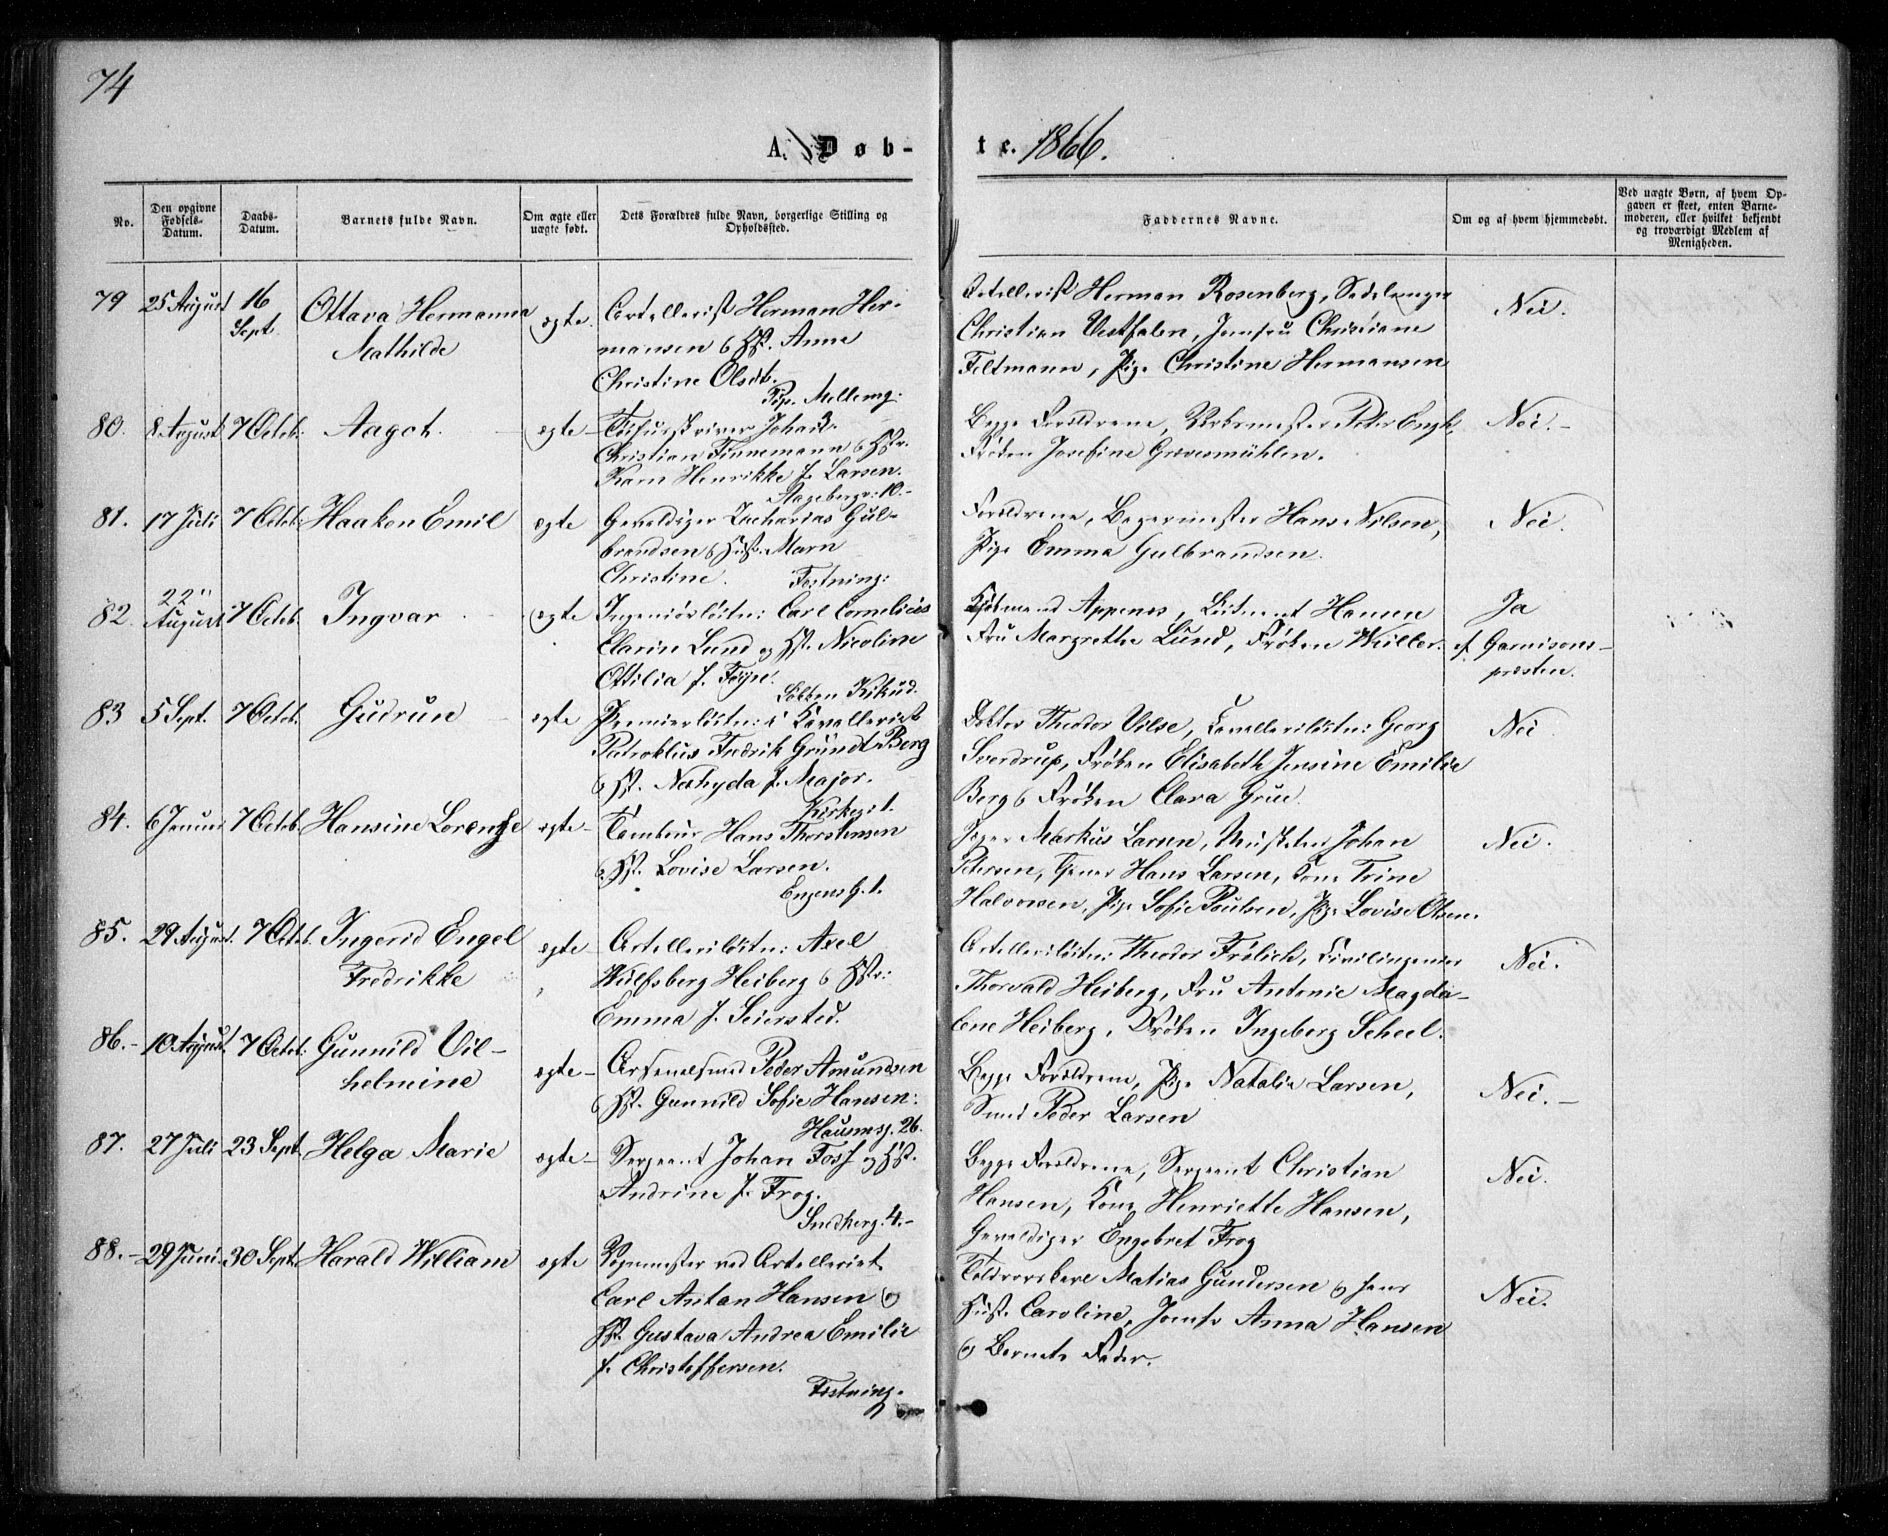 74
A. Døb-
te. 1866.
No.
Den opgivne Fødsels-Datum.
Daabs-Datum.
Barnets fulde Navn.
Om ægte eller uægte født.
Dets Forældres fulde Navn, borgerlige Stilling og Opholdssted.
Faddernes Navne.
Om og af hvem hjemmedøbt.
Ved uægte Børn, af hvem Op-
gaven er skeet, enten Barne-
moderen, eller hvilket bekjendt
og troværdigt Medlem af
Menigheden.
79 25 August 16 Sept. Ottava Hermanna Mathilde ægte.
Artellerist Herman Her-
mansen & Hst. Anne
Christine Olsdt.
Pip. Mellemg:
Artellerist Herman Rosenberg, Sadelmager
Christian Vestfalen, Jomfru Christiane
Feltmann, Pige Christine Hermansen
Nei.
80. 8 August 7 Octob: Aagot. ægte
Christian Finnemann & Hstr.
Karn Henrikke f. Larsen.
10.-
Begge Forældrene, Peter Engh,
Frøken Josefine Grevesmühlen.
Nei.-
81. 17 Juli 7 Octob: Haakon Emil ægte
Gevaldiger Zacharias Gul-
brandsen & Hust. Marn
Christine. Fæstning:
Forældrene, Bøssemester Hans Nilsen,
Pige Emma Gulbrandsen.
Nei.
82. 22" August 7 Octob. Ingvar ægte
Ingeniörlöitn: Carl Cornelius
Clarin Lund og Hst. Nicoline
Ottilia f. Føyn.
Kjøbmand Appenes, Löitnant Hansen
Fru Margrethe Lund, Frøken Müller.
Ja
af Garnisons-
præsten.
83 5 Sept. 7 Octob. Gudrun ægte
Premierlöitn: i Kavalleriet
Patroklus Fredrik Gründt Berg
& Hst. Nathyda f. Major.
Kirkeg: 1.
Doktor Theodor Vilse, Kavallerilöitn: Georg
Sverdrup, Frøken Elisabeth Jensine Emilie
Berg & Frøken Clara Grue.
Nei
84. 6 Januar 7 Octob. Hansine Lorentze ægte
Tambour Hans Thorstensen
& Hst. Lovise Larsen.
Engens G. 1.
Jæger Markus Larsen, Musketer Johan
Petersen, Hans Larsen, Kone Trine
Halvorsen, Pige Sofie Poulsen, Pige Lovise Olsen.
Nei.
85. 29 August. 7 Octob. Ingerid Engel Fredrikke ægte
Artellerilöitn: Axel
Wulfsberg Heiberg & Hstr:
Emma f. Seiersted.
Artellerilöitn: Theodor Frølich, Civilingeniør
Thorvald Heiberg, Fru Antonie Magda-
lene Heiberg, Frøken Ingeborg Scheel.
Nei.
86.- 10 August. 7 Octob: Gunnild Vil-
helmine ægte
Arsenalsmed Peder Amundsen
& Hst. Gunnild Sofie Hansen:
Hausmsg. 26.
Begge Forældrene, Pige Natalie Larsen,
Smed Peder Larsen
Nei.-
87. 27 Juli 23 Sept. Helga Marie ægte
Sergeant Johan Foss og Hst.
Andrine f. Frog.
Smedberg. 4.-
Begge Forældrene, Sergeant Christian
Hansen, Kone Henriette Hansen,
Gevaldiger Engebret Frog
Nei.
88.- 29 Juni. 30 Sept. Harald William ægte
Vognmester ved Artelleriet
Carl Anton Hansen &
Hst. Gustava Andrea Emilie
f. Christoffersen.
Fæstning.
Matias Gundersen & hans
Hust. Caroline, Jomfr Anna Hansen
& Barnets Fader.
Nei.